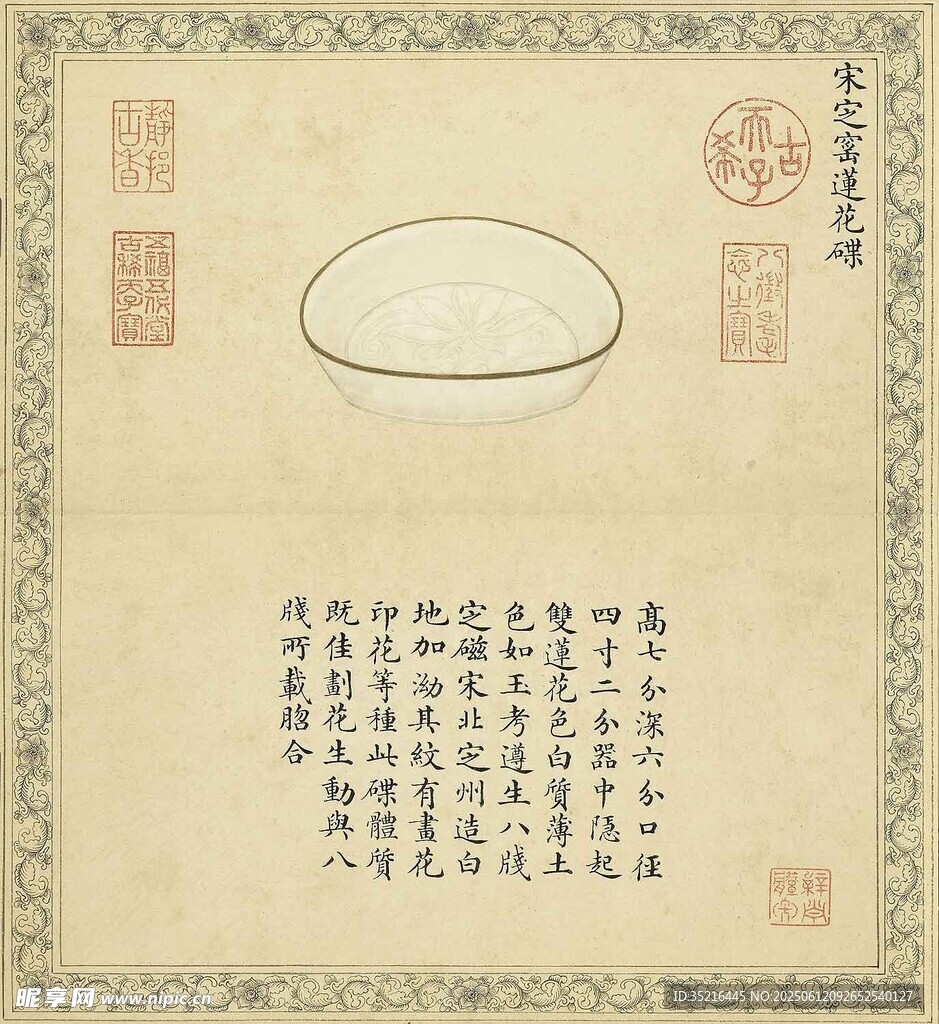 宋㝎窰蓮花碟
古希天子
八徵耄念之寶
靜挹古香
五福五代堂古稀天子寶
髙七分深六分口徑
四寸二分器中隱起
雙蓮花色白質薄土
色如玉考遵生八牋
㝎磁宋北㝎州造白
地加泑其紋有畫花
印花等種此碟體質
既佳劃花生動與八
牋所載脗合
昵享网 www.nipic.cn
ID:35216445 NO:20250612092652540127